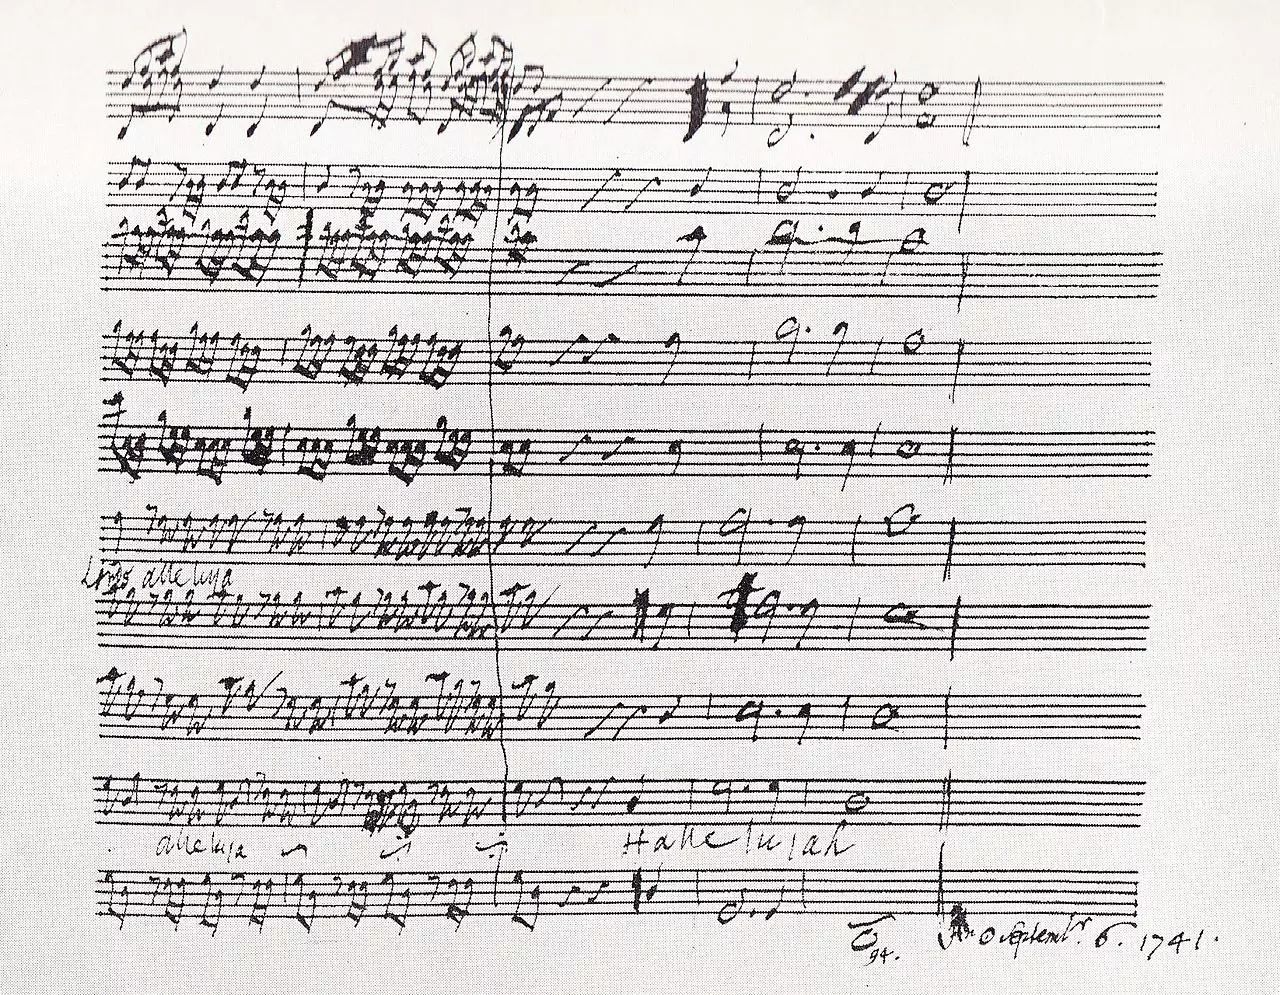 alleluja
alleluja
Hallelujah
94.
Septembr. 6. 1741.